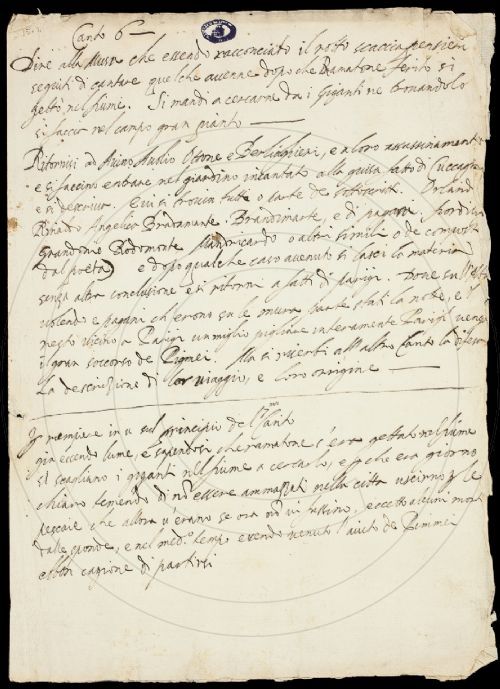 Canto 6
Dire alla Musa che essendo racconciato il rotto scaccia pensieri
seguiti di cantare quel che avenne dopo che Ramatone ferito si
gettò nel fiume. Si mandi a cercarne da i Giganti ne trovandolo
si faccia nel campo gran pianto
Ritornisi ad Avino Avolio Ottone e Berlinghieri, e a loro assassinamenti
e si faccino entrare nel giardino incantato alla guisa fatto di Cuccagna
e si descriva. Qui si trovin tutte o parte de Orland
Rinaldo Angelica Bradamante Brandimarte, e di pagani
Grandonio Rodomonte Mandricardo o altri simili o de composti
dal poeta) e dopo qualche caso avenuto si lasci la materia
senza altra conclusione e si ritorni a fatti di parigi. Dove su l'
volendo e pagani ch'erono su le mura state la note, e l'
resto vicino a Parigi un miglio pigliare interamente Parigi venga
il gran soccorso de Pigmei. Ma si riserbi all'altro Canto la
La descrizione di lor viaggio, e loro origine
In principio del Canto
già essendo lume, e sapendosi che ramatone s'era gettato nel fiume
si scagliano i giganti nel fiume a cercarlo, e perche era giorno
chiaro temendo di non essere ammazzati nella città uscirno
che allora v'erano se ora non vi fussino, eccetto alcuni morti
dalle sponde, e nel med.o tempo essendo venuto l'aiuto de Pimmei
ebber cagione di partirsi